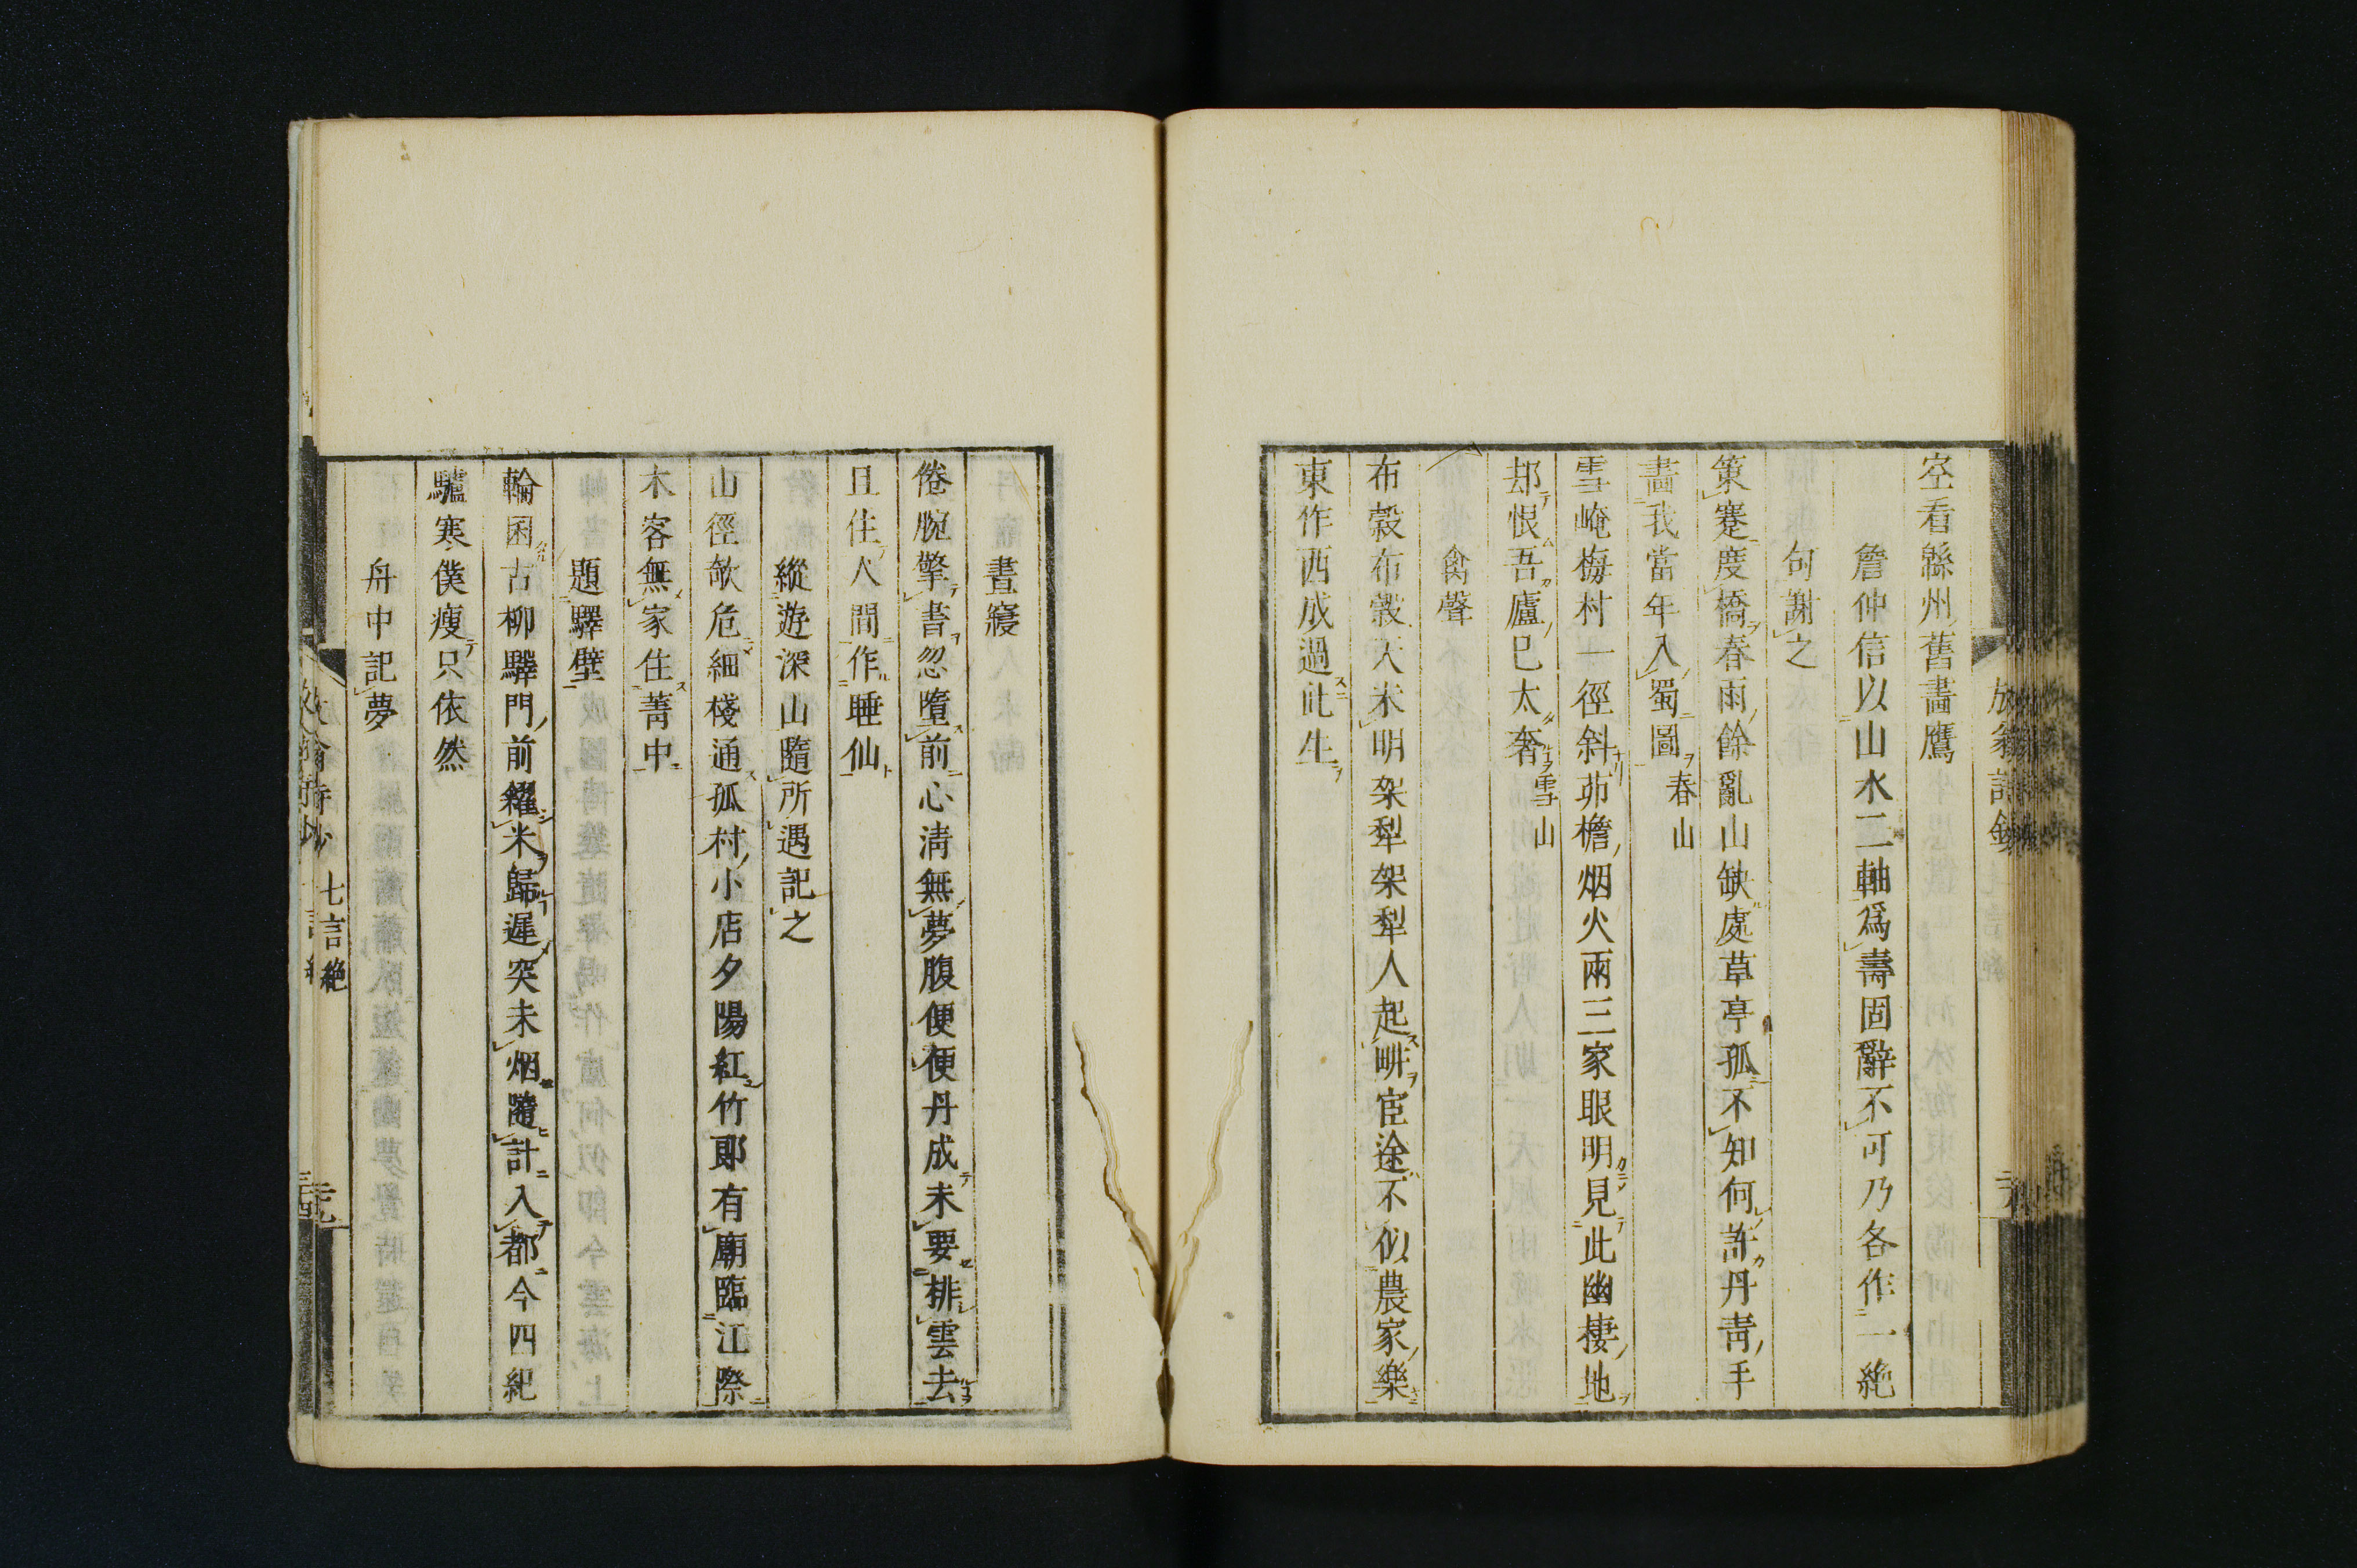 空看緜州舊畫鷹
詹仲信以山水二軸爲壽固辭不可乃各作一絶
句謝之
策蹇度橋春雨餘亂山缺處草亭孤不知何許丹靑手
畫我當年入蜀圖 春山
雪崦梅村一徑斜茆檐烟火兩三家眼明見此幽棲地
却恨吾廬已太奢 雪山
禽聲
布穀布穀天未明架犁架犁人起畊宦途不似農家樂
東作西成過此生
晝寢
倦腕擎書忽墮前心淸無夢腹便便丹成未要排雲去
且住人間作睡仙
縱遊深山隨所遇記之
山徑欹危細棧通孤村小店夕陽紅竹郞有廟臨江際
木客無家住菁中
題驛壁
輪囷古柳驛門前糴米歸遲突未烟隨計入都今四紀
驢寒僕瘦只依然
舟中記夢
七言絶